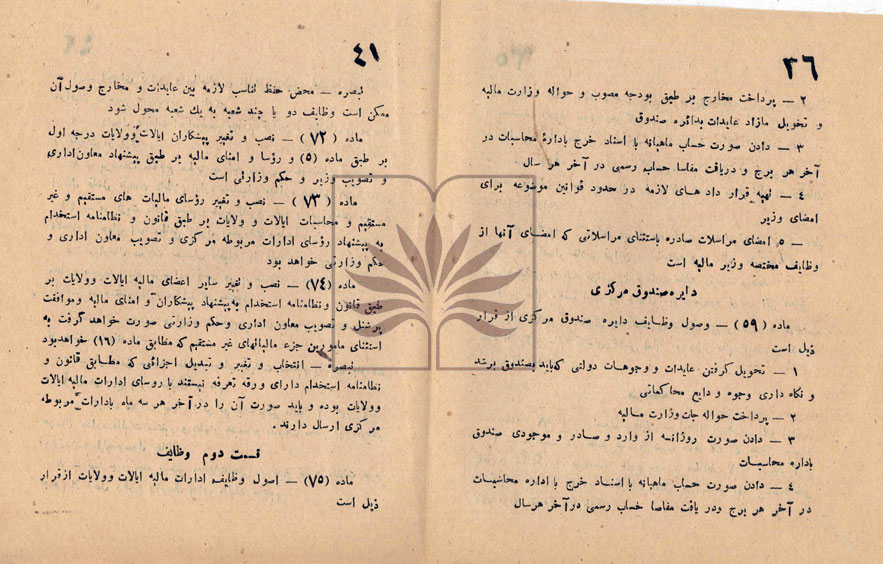 ۳۶
۲ — پرداخت مخارج بر طبق بودجه مصوب و حواله وزارت مالیه
و تحویل مازاد عایدات بدائره صندوق
۳ — دادن صورت حساب ماهیانه با اسناد خرج بادارهٔ محاسبات در
آخر هر برج و دریافت مفاسا حساب رسمی در آخر هر سال
٤ — تهیه قرار داد های لازمه در حدود قوانین موضوعه برای
امضای وزیر
۵ — امضای مراسلات صادره باستثنای مراسلاتی که امضای آنها از
وظایف مختصه وزیر مالیه است
دایره صندوق مرکزی
ماده (۵۹) — وصول وظایف دایره صندوق مرکزی از قرار
ذیل است
۱ — تحویل گرفتن عایدات و وجوهات دولتی که باید بصندوق برسد
و نگاه داری وجوه و دایع محاکماتی
۲ — پرداخت حواله جات وزارت مالیه
۳ — دادن صورت روزانه از وارد و صادر و موجودی صندوق
باداره محاسبات
٤ — دادن صورت حساب ماهیانه با اسناد خرج با اداره محاسبات
در آخر هر برج ودر یافت مفاصا حساب رسمی در آخر هر سال
٤١
تبصره — محض حفظ تناسب لازمه بین عایدات و مخارج وصول آن
ممکن است وظایف دو یا چند شعبه به یك شعبه محول شود
ماده (۷۲) — نصب و تغییر پیشکاران ایالات و ولایات درجه اول
بر طبق ماده (۵) و رؤسا و امنای مالیه بر طبق پیشنهاد معاون اداری
و تصویب وزیر و حکم وزارتی است
ماده (۷۳) — نصب و تغییر رؤسای مالیات های مستقیم و غیر
مستقیم و محاسبات ایالات و ولایات بر طبق قانون و نظامنامه استخدام
به پیشنهاد رؤسای ادارات مربوطه مرکزی و تصویب معاون اداری و
حکم وزارتی خواهد بود
ماده (۷٤) — نصب و تغییر سایر اعضای مالیه ایالات وولایات بر
طبق قانون ونظامنامه استخدام به پیشنهاد پیشکاران و امنای مالیه وموافقت
پرشنل و تصویب معاون اداری وحکم وزارتی صورت خواهد گرفت به
استثنای مامورین جزء مالیاتهای غیر مستقیم که مطابق ماده (۱۶) خواهد بود
تبصره — انتخاب و تغییر و تبدیل اجزائی که مطابق قانون و
نظامنامه استخدام دارای ورقه تعرفه نیستند با روسای ادارات مالیه ایالات
وولایات بوده و باید صورت آن را در آخر هر سه ماه بادارات مربوطه
مرکزی ارسال دارند.
قسمت دوم وظایف
ماده (۷۵) — اصول وظایف ادارات مالیه ایالات وولایات از قرار
ذیل است